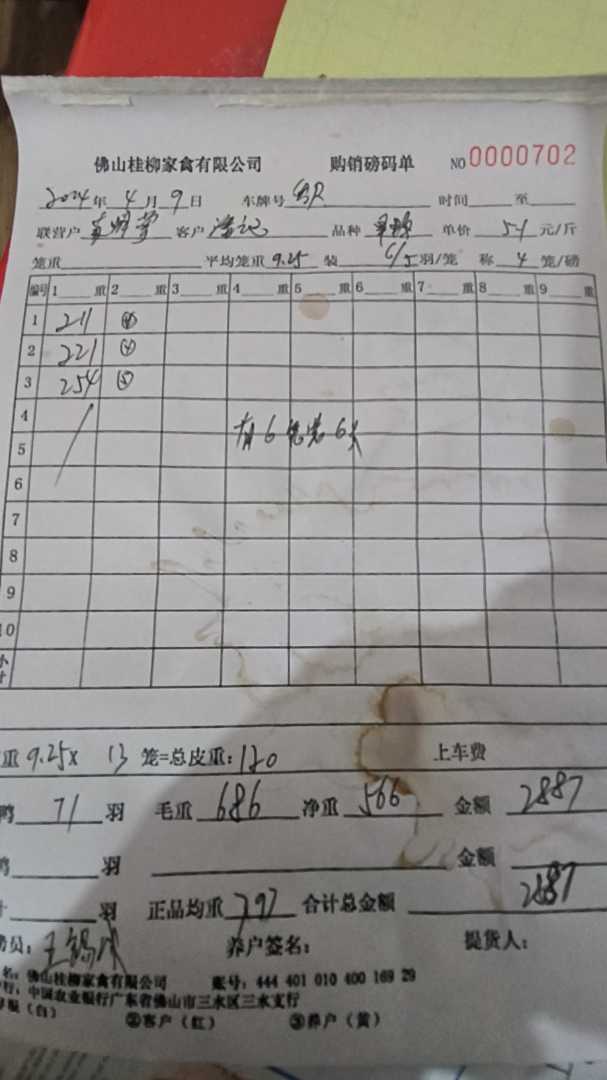 佛山桂柳家禽有限公司 购销磅码单 NO 0000702
2024年 4月 9日 车牌号 时间 至
联营户 客户 记 品种 单价 5.1 元/斤
笼重 平均笼重 9.25 装 6/5 羽/笼 称 4 笼/磅
编号 1 重 2 重 3 重 4 重 5 重 6 重 7 重 8 重 9 重
1 211 ④
2 221 ④
3 254 ⑤
4
有6笼装6只
5
6
7
8
9
10
小计
重 9.25× 13 笼=总皮重: 120 上车费
鸭 71 羽 毛重 686 净重 566 金额 2887
羽 金额
羽 正品均重 7.97 合计总金额 2887
员: 王 养户签名: 提货人:
名: 佛山桂柳家禽有限公司 账号: 444 401 010 400 169 29
行: 中国农业银行广东省佛山市三水区三水支行
(白) ②客户(红) ③养户(黄)